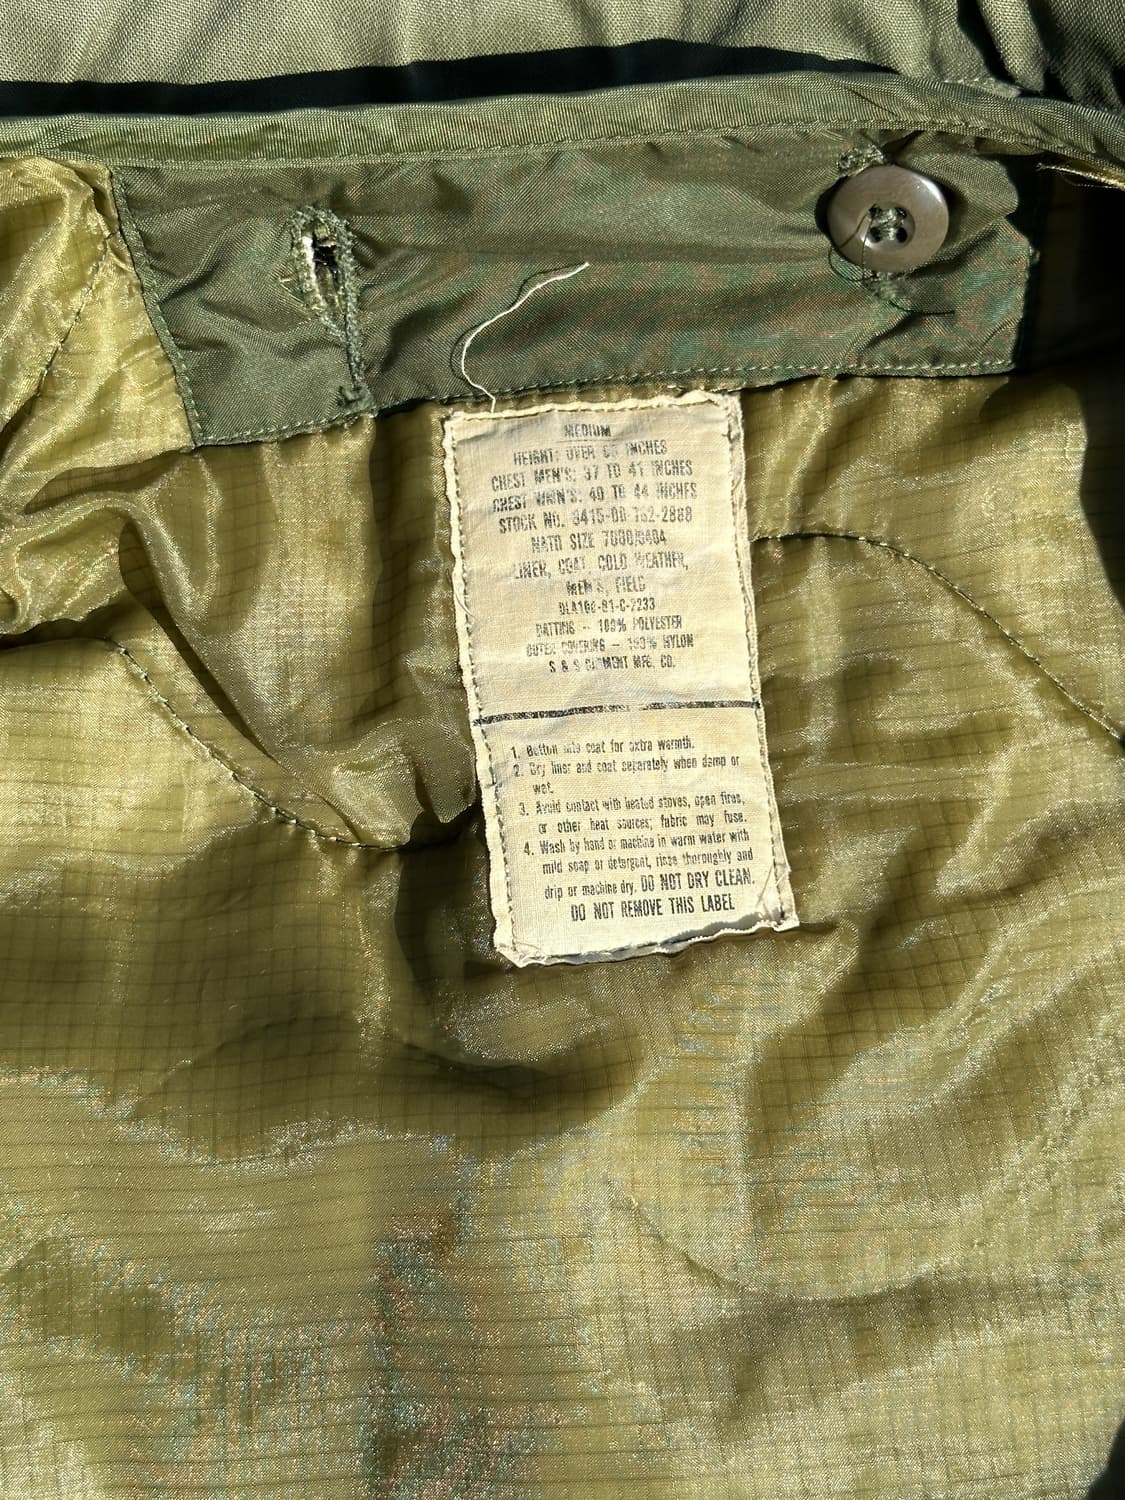 MEDIUM
HEIGHT: OVER INCHES
CHEST MEN'S: 37 TO 41 INCHES
CHEST WMN'S: 40 TO 44 INCHES
STOCK NO. 8415-00-782-2888
NATO SIZE
LINER, COAT, COLD WEATHER,
MEN'S, FIELD
DLA100-81-C-2233
BATTING – 100% POLYESTER
OUTER COVERING – 100% NYLON
S & S GARMENT MFG. CO.
1. Button into coat for extra warmth.
2. Dry liner and coat separately when damp or
wet.
3. Avoid contact with heated stoves, open fires,
or other heat sources; fabric may fuse.
4. Wash by hand or machine in warm water with
mild soap or detergent, rinse thoroughly and
drip or machine dry. DO NOT DRY CLEAN.
DO NOT REMOVE THIS LABEL